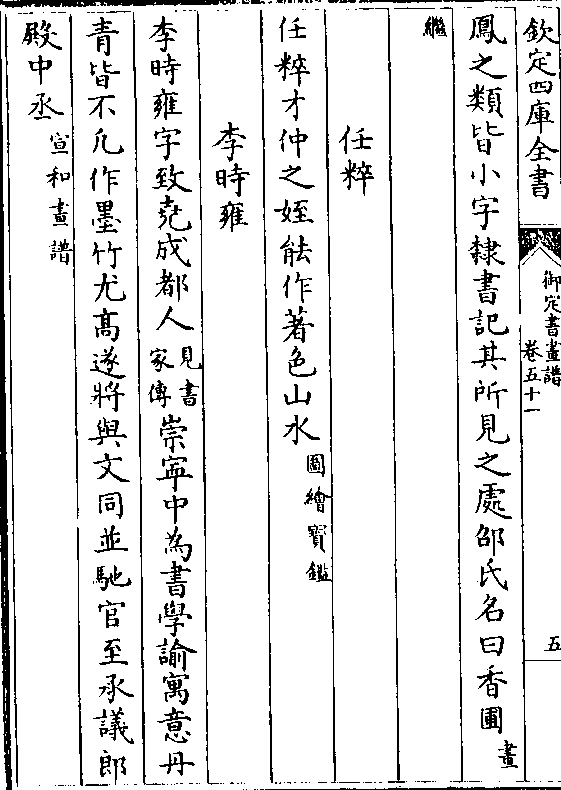 欽定四庫全書
御定書畫譜
卷五十一
五
鳳之類皆小字隸書記其所見之處邵氏名曰香圃畫
繼
任粹
任粹才仲之姪能作著色山水圖繪寶鑑
李時雍
李時雍字致堯成都人見書家傳崇寧中為書學諭寓意丹
青皆不凡作墨竹尤高遂將與文同並馳官至承議郎
殿中丞宣和畫譜